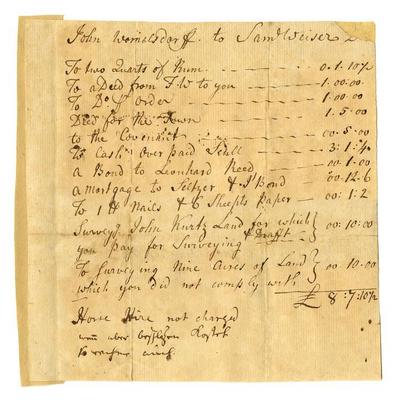 John Womelsdorff to Saml Weiser D
To two Quarts of Rum 0. 1. 10½
To a Deed from F:W to you 1. 00. 00
To Do. Order 1. 00. 00
Deed for the Town 1. 5. 00
to the Covenant 00. 5. 00
To Cash Over paid 3: 1: 4
a Bond to Leonhard Reed 00. 1. 00
a mortgage to Seltzer & 1 Bond 00. 12. 6
To 1 H Nails & 6 Sheepts Paper 00: 1: 2
Survey John Kurtz Land for which
you pay for Surveying & Drafft 00: 10: 00
To Surveying Nine Acres of Land 00 10. 00
which you did not comply with
£ 8: 7: 10½
Horse Hire not charged